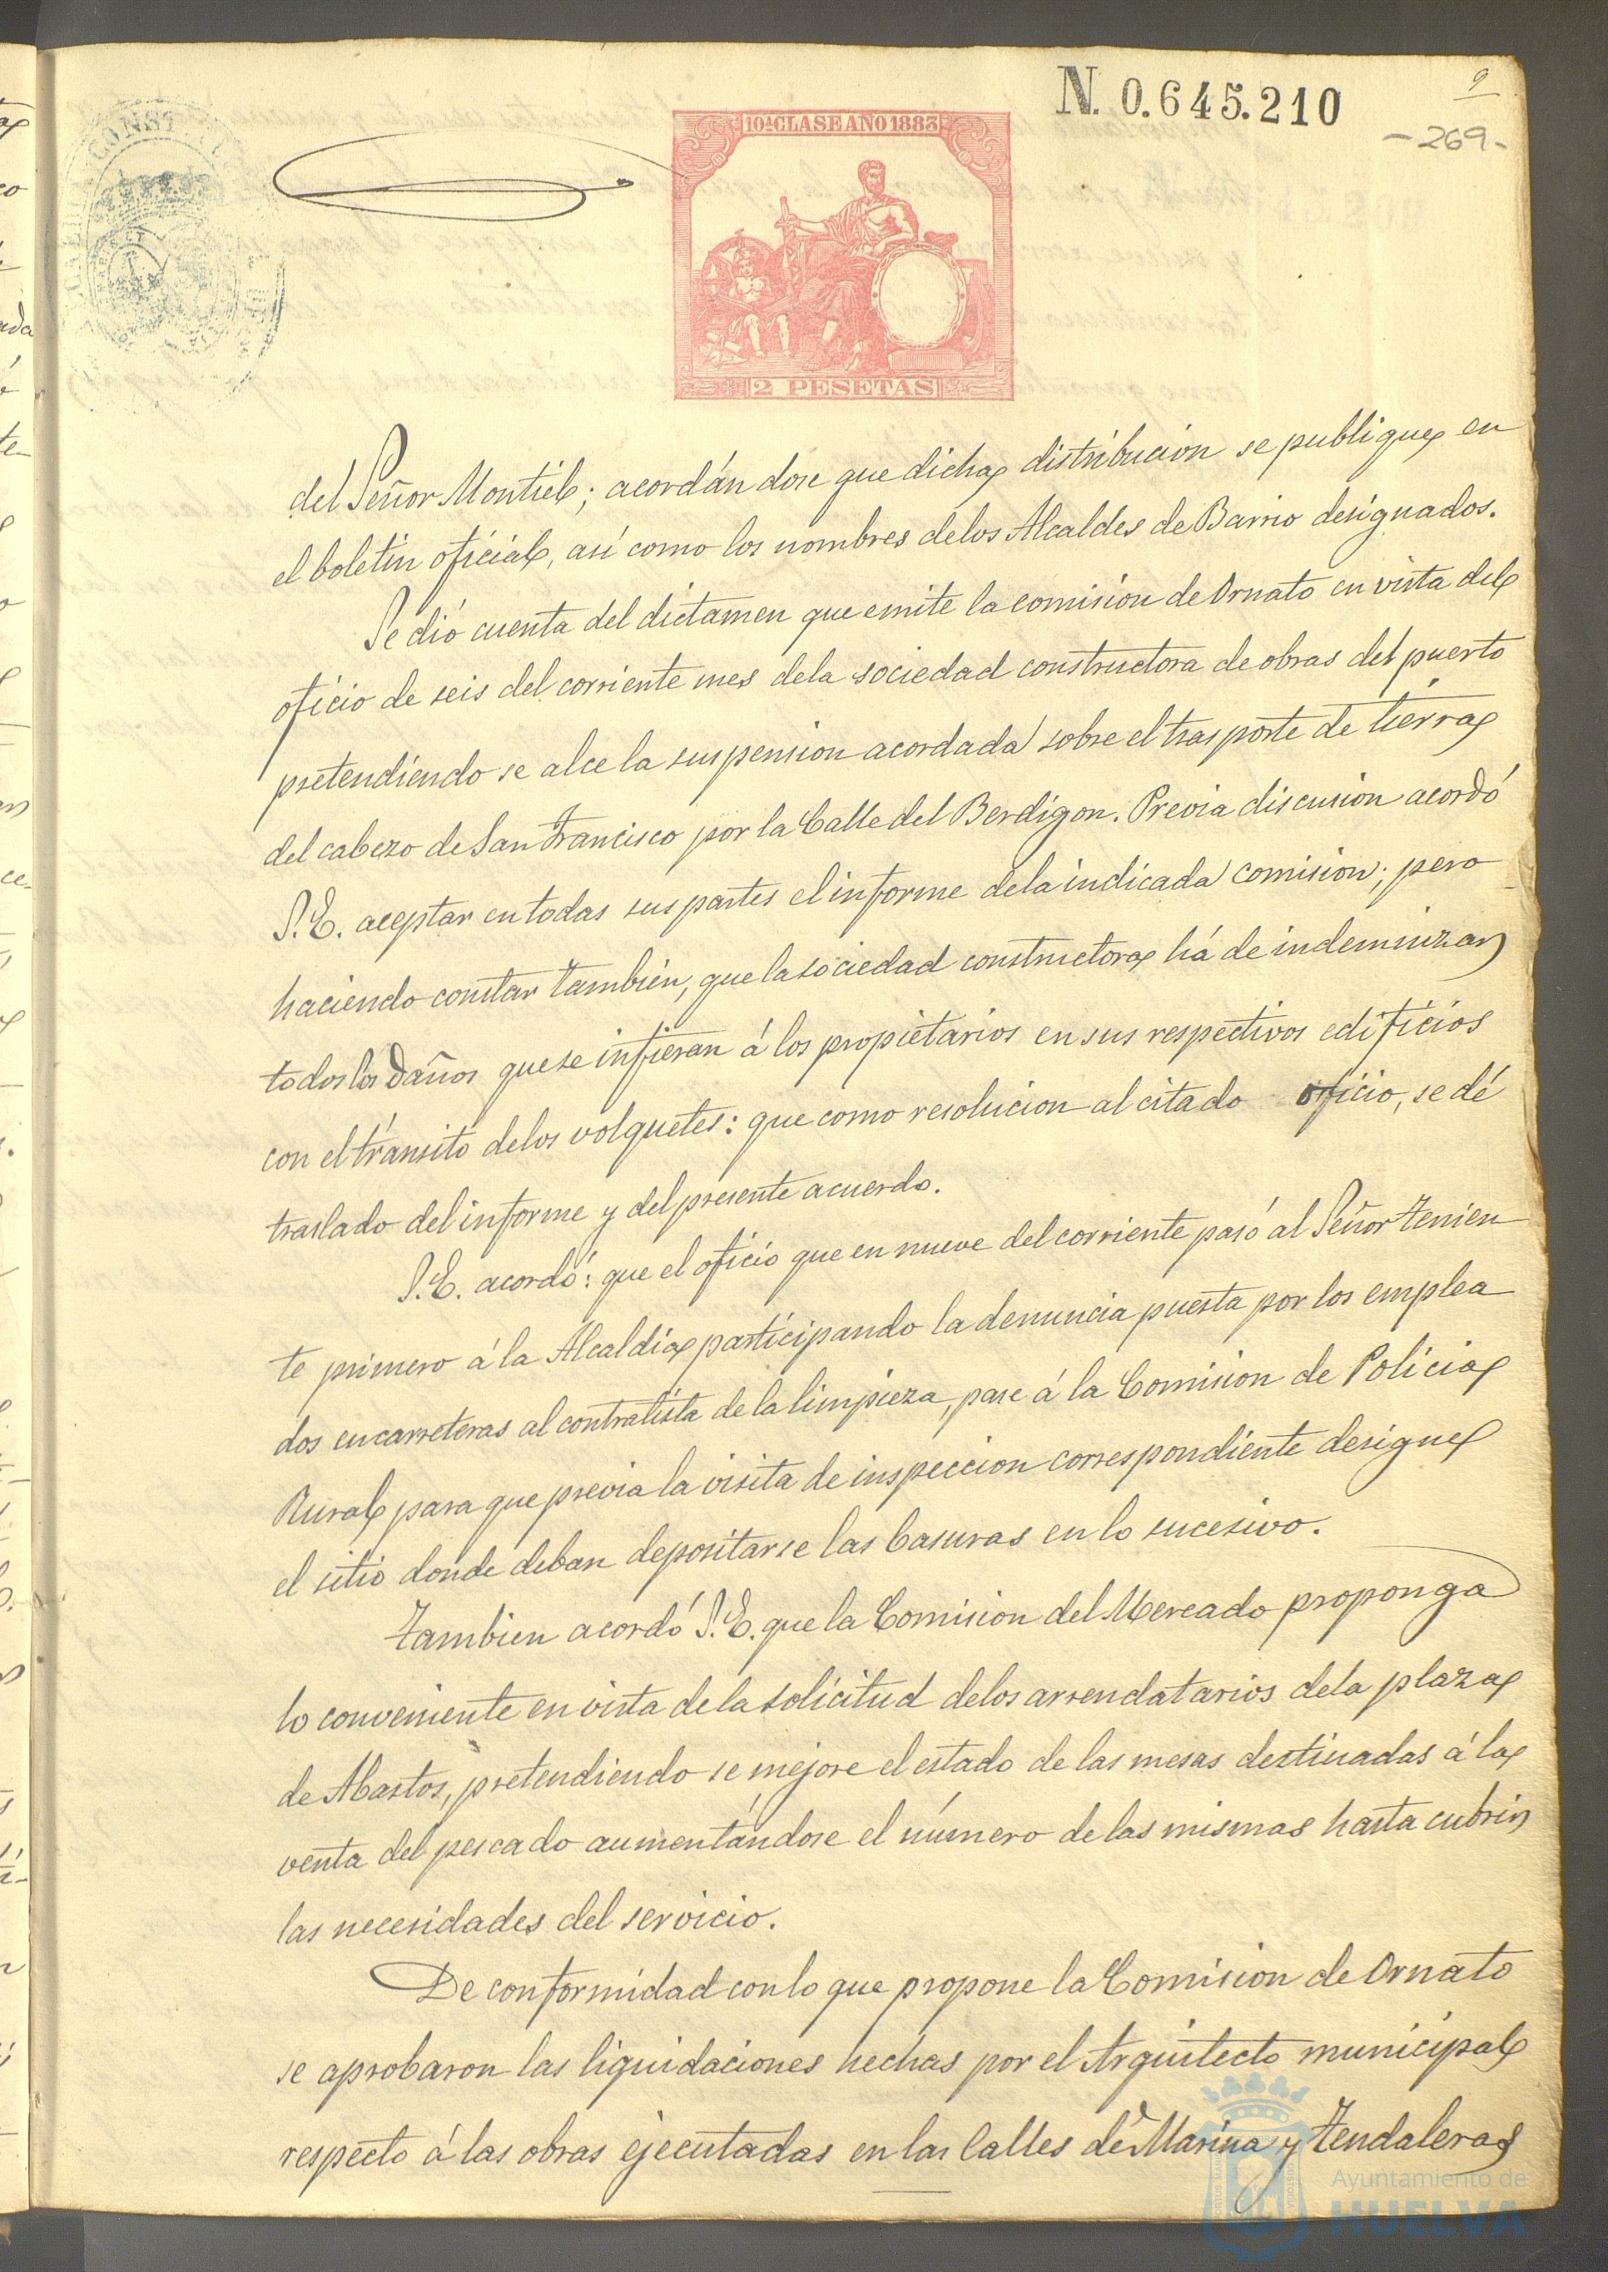 N. 0.645.210
9
-269-
CONST
10ª CLASE AÑO 1883
2 PESETAS
del Señor Montiel; acordándose que dicha distribución se publique en
el boletin oficial, así como los nombres de los Alcaldes de Barrio designados.
Se dió cuenta del dictamen que emite la comision de Ornato en vista del
oficio de seis del corriente mes de la sociedad constructora de obras del puerto
pretendiendo se alce la suspension acordada sobre el trasporte de tierra
del cabezo de San Francisco por la Calle del Berdigon. Previa discusion acordó
S.E. aceptar en todas sus partes el informe de la indicada comision; pero
haciendo constar tambien, que la sociedad constructora há de indemnizar
todos los daños que se infieran á los propietarios en sus respectivos edificios
con el tránsito de los volquetes: que como resolucion al citado oficio, se dé
traslado del informe y del presente acuerdo.
S.E. acordó: que el oficio que en nueve del corriente pasó al Señor Tenien
te primero á la Alcaldia participando la denuncia puesta por los emplea
dos en carreteras al contratista de la limpieza, pase á la Comision de Policia
Rural para que previa la visita de inspeccion correspondiente designe
el sitio donde deban depositarse las basuras en lo sucesivo.
Tambien acordó S.E. que la Comision del Mercado proponga
lo conveniente en vista de la solicitud de los arrendatarios de la plaza
de Abastos, pretendiendo se mejore el estado de las mesas destinadas á la
venta del pescado aumentándose el número de las mismas hasta cubrir
las necesidades del servicio.
De conformidad con lo que propone la Comision de Ornato
se aprobaron las liquidaciones hechas por el Arquitecto municipal
respecto á las obras ejecutadas en las Calles de Marina y Tendaleras
Ayuntamiento de
HUELVA